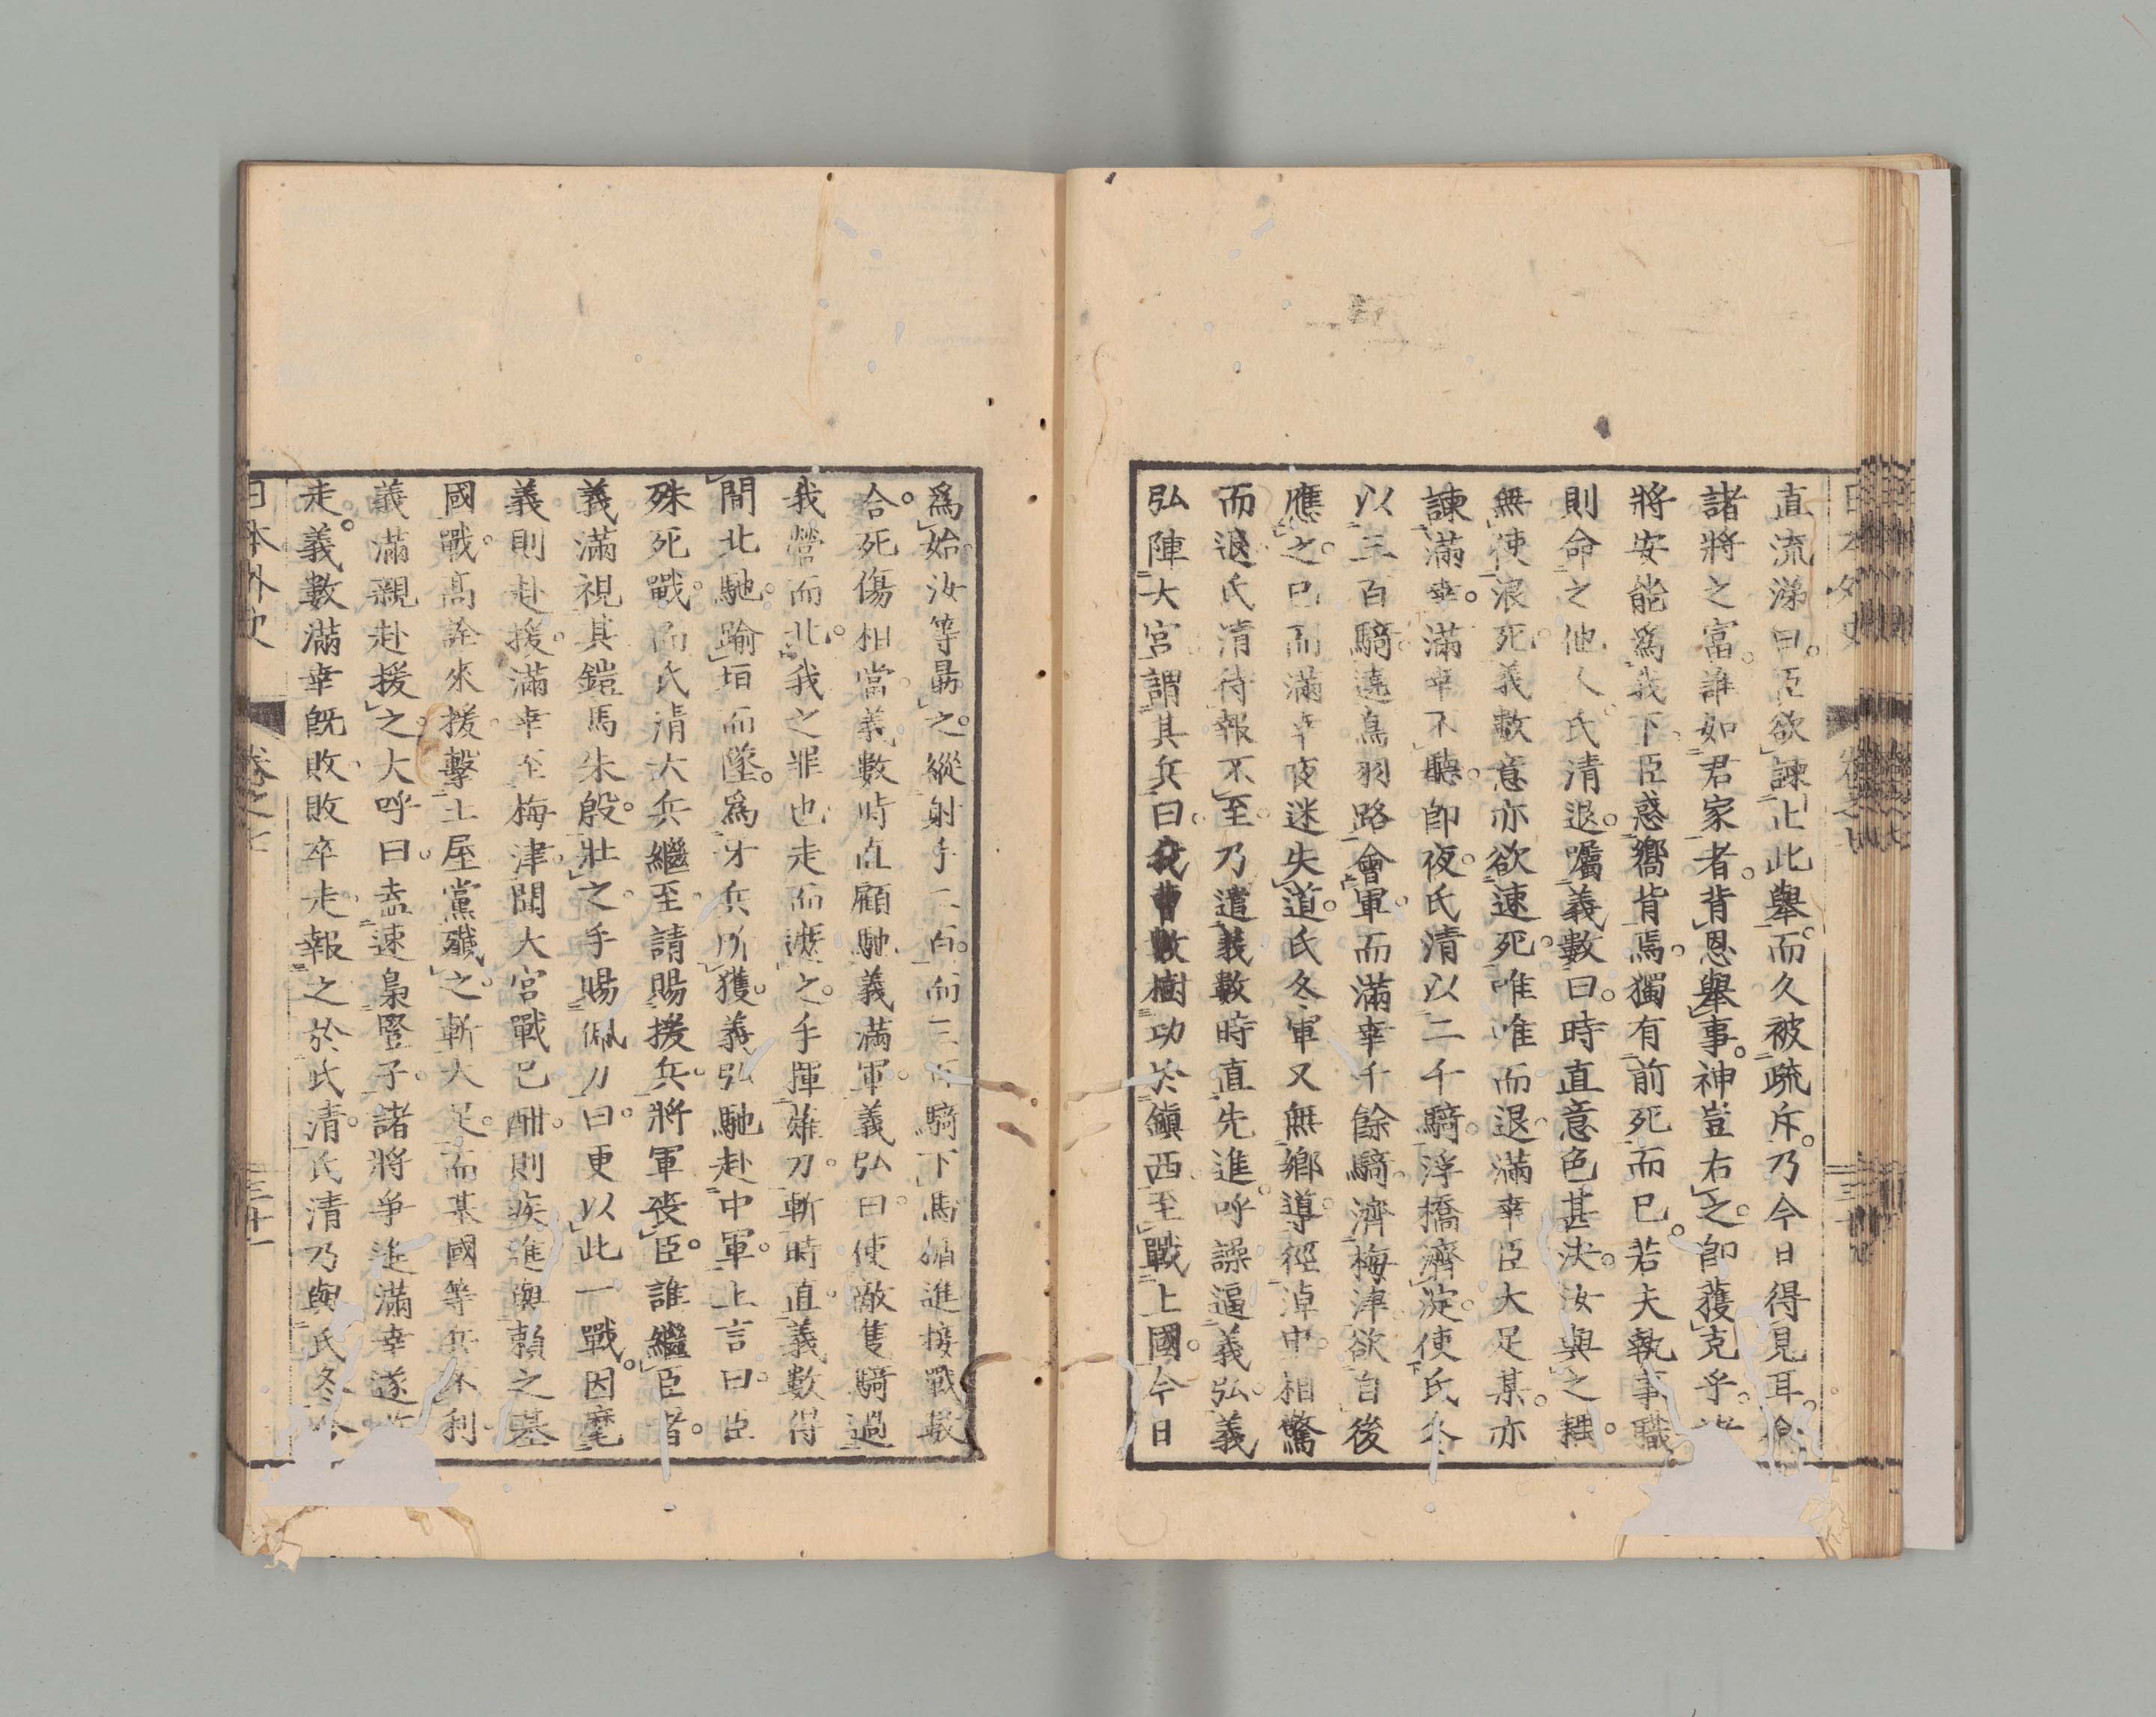 直流涕曰。臣欲諫止此舉。而久被疏斥。乃今日得見耳。
諸將之富。誰如君家者。背恩舉事。神豈右之。卽獲克乎。
將安能爲我下。臣惑嚮背焉。獨有前死而已。若夫執事職
則命之他人。氏清退。囑義數曰。時直意色甚決。汝與之耦。
無使浪死。義數意亦欲速死。唯唯而退。滿幸臣大足某。亦
諫滿幸。滿幸不聽。卽夜。氏清以二千騎。浮橋濟淀。使氏冬
以三百騎。遶鳥羽路會軍。而滿幸千餘騎。濟梅津欲自後
應之。已而滿幸夜迷失道。氏冬軍又無鄉導。徑淖中。相驚
而退。氏清待報不至。乃遣義數時直先進。呼譟逼義弘。義
弘陣大宮。謂其兵曰。我曹數樹功於鎭西。至戰上國。今日
爲始。汝等勗之。縱射手二百。而三百騎下馬楯進接戰數
合。死傷相當。義數時直顧馳義滿軍。義弘曰。使敵隻騎過
我營而北。我之罪也。走而遮之。手揮薙刀。斬時直。義數得
間北馳。踰垣而墜。爲牙兵所獲。義弘馳赴中軍。上言曰。臣
殊死戰。而氏清大兵繼至。請賜援兵。將軍喪臣。誰繼臣者。
義滿視其鎧馬朱殷。壯之。手賜佩刀曰。更以此一戰。因麾
義則赴援。滿幸至梅津。聞大宮戰已酣。則疾進與賴之基
國戰。高詮來援。擊土屋黨殲之。斬大足。而基國等兵不利
義滿親赴援之。大呼曰。盍速梟豎子。諸將爭進。滿幸遂
走。義數滿幸旣敗。敗卒走報之於氏清。氏清乃與氏冬
日本外史 卷之七 三十一